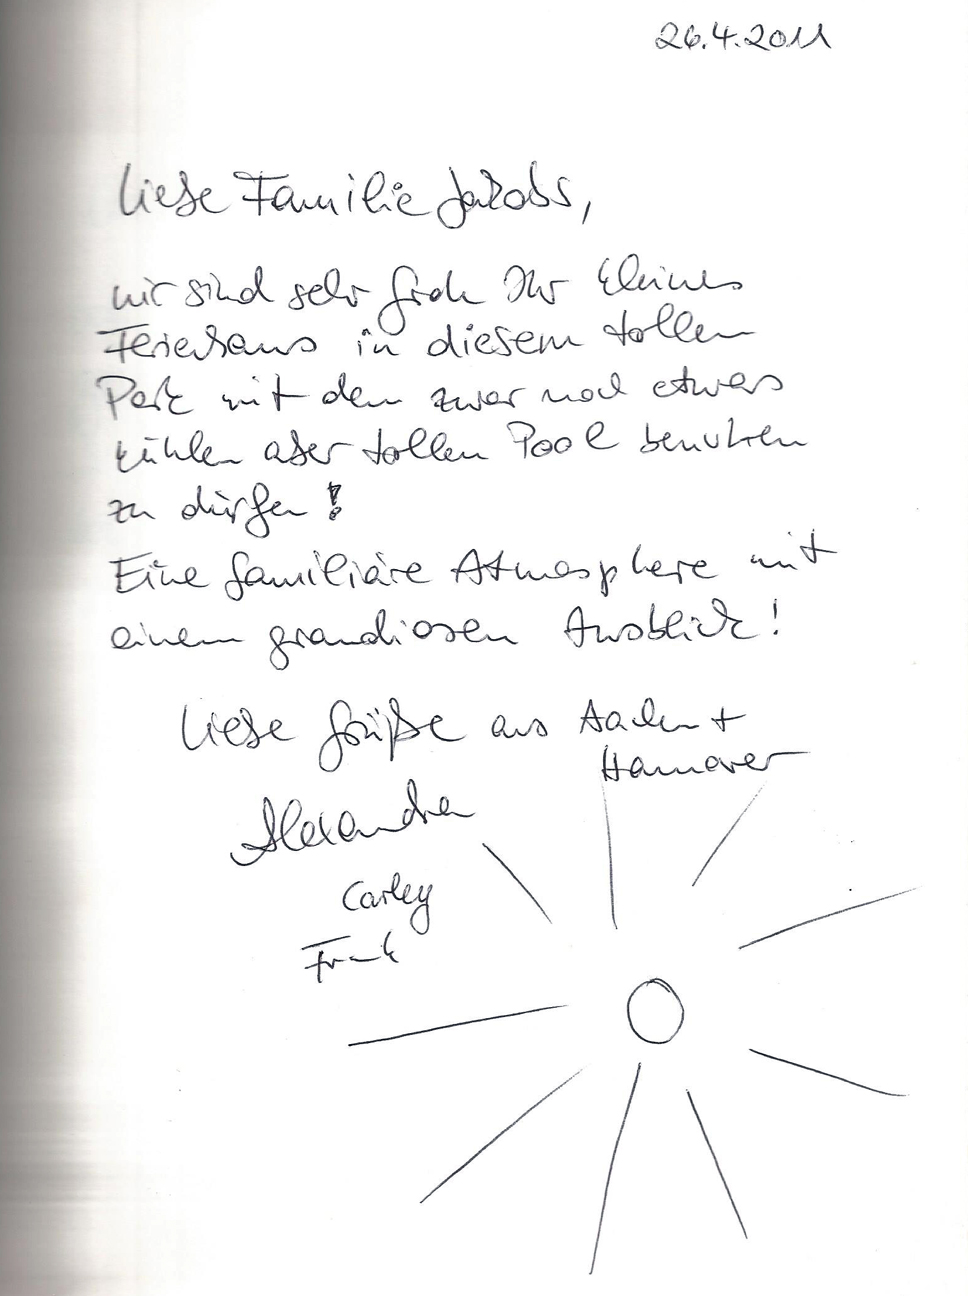 26.4.2011
Liebe Familie Jakobs,
wir sind sehr froh Ihr kleines
Ferienhaus in diesem tollen
Park mit dem zwar noch etwas
kühlen aber tollen Pool benutzen
zu dürfen!
Eine familiäre Atmosphere mit
einem grandiosen Ausblick!
Liebe Grüße aus Aachen +
Hannover
Alexandra
Carley
Frank